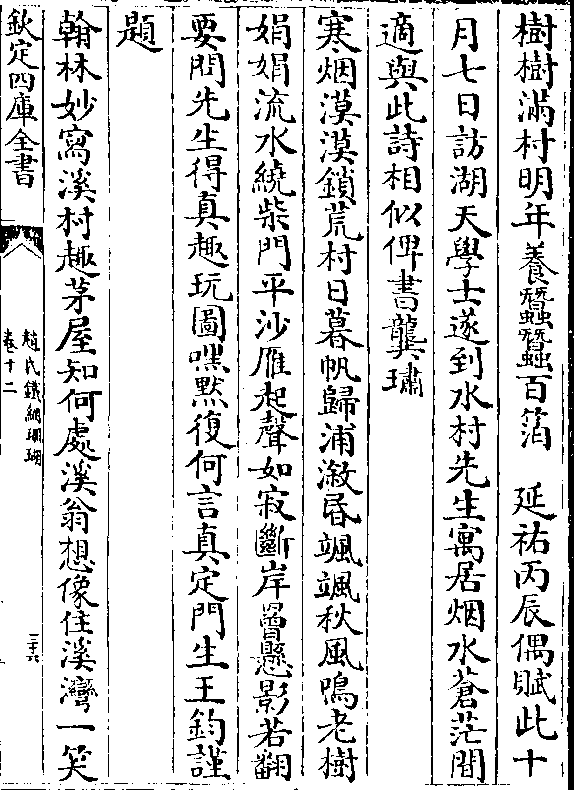 樹樹滿村明年養蠶蠶百箔　延祐丙辰偶賦此十
月七日訪湖天學士遂到水村先生寓居烟水蒼茫間
適與此詩相似俾書龔璛
寒烟漠漠鎖荒村日暮帆歸浦溆昏颯颯秋風鳴老樹
娟娟流水繞柴門平沙雁起聲如寂斷岸罾懸影若翻
要問先生得真趣玩圖嘿默復何言真定門生王鈞謹
題
翰林妙寫溪村趣茅屋知何處溪翁想像住溪灣一笑
欽定四庫全書
趙氏鐵網珊瑚
卷十二
三六